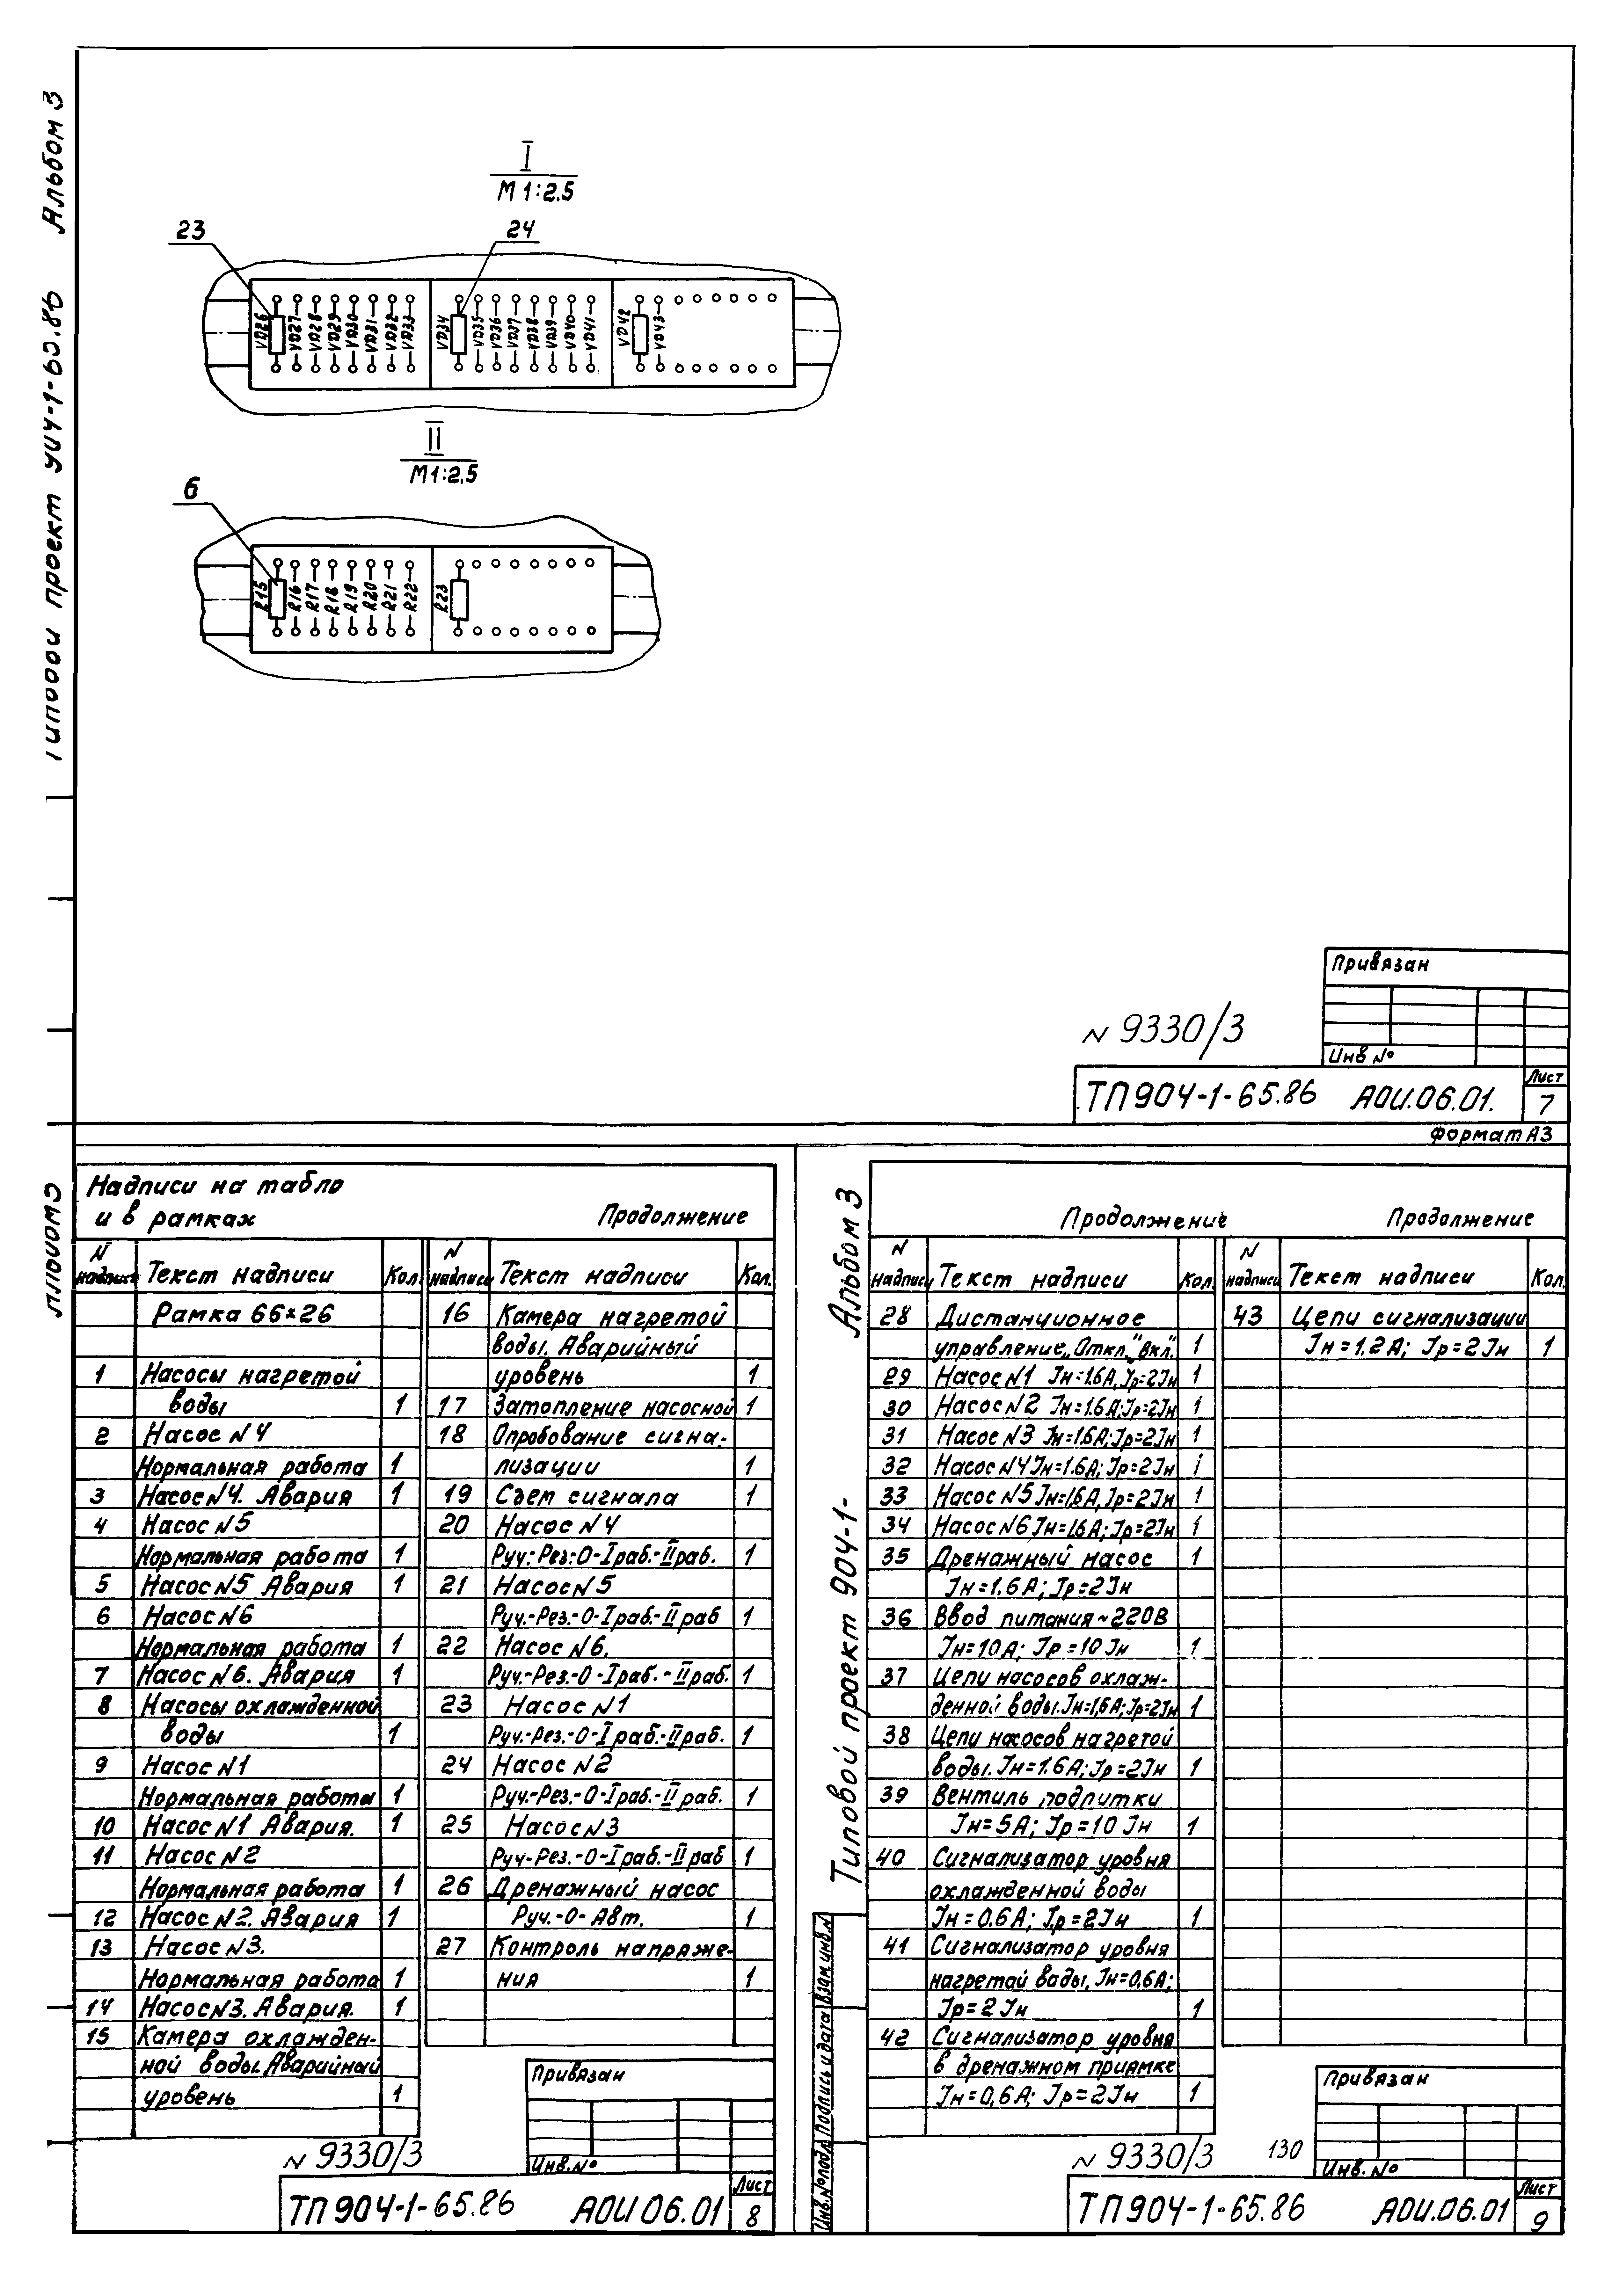 Альбом 3
проект 904-1-65.86
I
М 1:2.5
23
24
VD26
VD27
VD28
VD29
VD30
VD31
VD32
VD33
VD34
VD35
VD36
VD37
VD38
VD39
VD40
VD41
VD42
VD43
II
М1:2.5
6
R15
R16
R17
R18
R19
R20
R21
R22
R23
Привязан
Инв №
N 9330/3
ТП904-1-65.86 АОИ.06.01.
Лист
7
Формат А3
Надписи на табло
и в рамках Продолжение
N надписи Текст надписи Кол.
Рамка 66×26
1 Насосы нагретой
воды 1
2 Насос N4
Нормальная работа 1
3 Насос N4. Авария 1
4 Насос N5
Нормальная работа 1
5 Насос N5 Авария 1
6 Насос N6
Нормальная работа 1
7 Насос N6. Авария 1
8 Насосы охлажденной
воды 1
9 Насос N1
Нормальная работа 1
10 Насос N1 Авария. 1
11 Насос N2
Нормальная работа 1
12 Насос N2. Авария 1
13 Насос N3.
Нормальная работа 1
14 Насос N3. Авария. 1
15 Камера охлажден-
ной воды. Аварийный
уровень 1
N надписи Текст надписи Кол.
16 Камера нагретой
воды. Аварийный
уровень 1
17 Затопление насосной 1
18 Опробование сигна-
лизации 1
19 Съем сигнала 1
20 Насос N4
Руч.-Рез.-О-I раб.-II раб. 1
21 Насос N5
Руч.-Рез.-О-I раб.-II раб 1
22 Насос N6.
Руч.-Рез.-О-I раб.-II раб. 1
23 Насос N1
Руч.-Рез.-О-I раб.-II раб. 1
24 Насос N2
Руч.-Рез.-О-I раб.-II раб. 1
25 Насос N3
Руч-Рез.-О-I раб.-II раб 1
26 Дренажный насос
Руч.-О-Авт. 1
27 Контроль напряже-
ния 1
Привязан
Инв.№
N 9330/3
ТП904-1-65.86 АОИ 06.01
Лист
8
Альбом 3
Типовой проект 904-1-
Взам.инв.N
Подпись и дата
Инв.№подл.
Продолжение
N надписи Текст надписи Кол.
28 Дистанционное
управление „Откл." „Вкл." 1
29 Насос N1 Iн=1.6А, Iр=2Iн 1
30 Насос N2 Iн=1.6А; Iр=2Iн 1
31 Насос N3 Iн=1.6А; Iр=2Iн 1
32 Насос N4 Iн=1.6А; Iр=2Iн 1
33 Насос N5 Iн=1,6А, Iр=2Iн 1
34 Насос N6 Iн=1.6А; Iр=2Iн 1
35 Дренажный насос 1
Iн=1.6А; Iр=2Iн
36 Ввод питания ~220В
Iн=10А; Iр=10 Iн 1
37 Цепи насосов охлаж-
денной воды. Iн=1,6А; Iр=2Iн 1
38 Цепи насосов нагретой
воды. Iн=1.6А; Iр=2Iн 1
39 Вентиль подпитки
Iн=5А; Iр=10 Iн 1
40 Сигнализатор уровня
охлажденной воды
Iн=0.6А; Iр=2Iн 1
41 Сигнализатор уровня
нагретой воды, Iн=0,6А;
Iр=2 Iн 1
42 Сигнализатор уровня
в дренажном приямке
Iн=0,6А; Iр=2Iн 1
Продолжение
N надписи Текст надписи Кол.
43 Цепи сигнализации
Iн=1.2А; Iр=2Iн 1
Привязан
Инв.№
N 9330/3
130
ТП904-1-65.86 АОИ.06.01
Лист
9